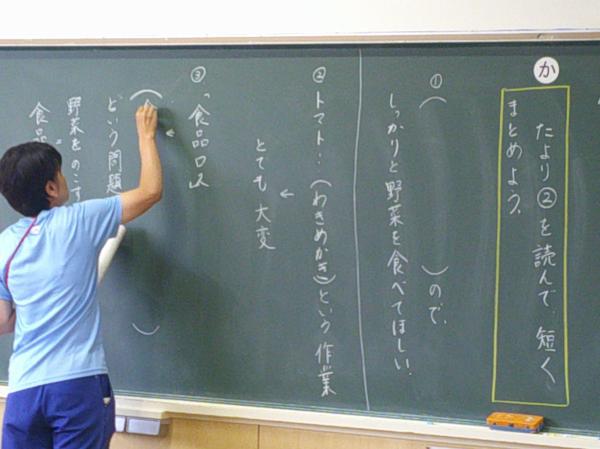 か
たより②を読んで、短く、
まとめよう。
①
（　　　）ので、
しっかりと野菜を食べてほしい。
②トマト…（わきめかき）という作業
←
とても大変
③「食品ロス
←
（　　　）
という問題
野菜をのこす
=
食品